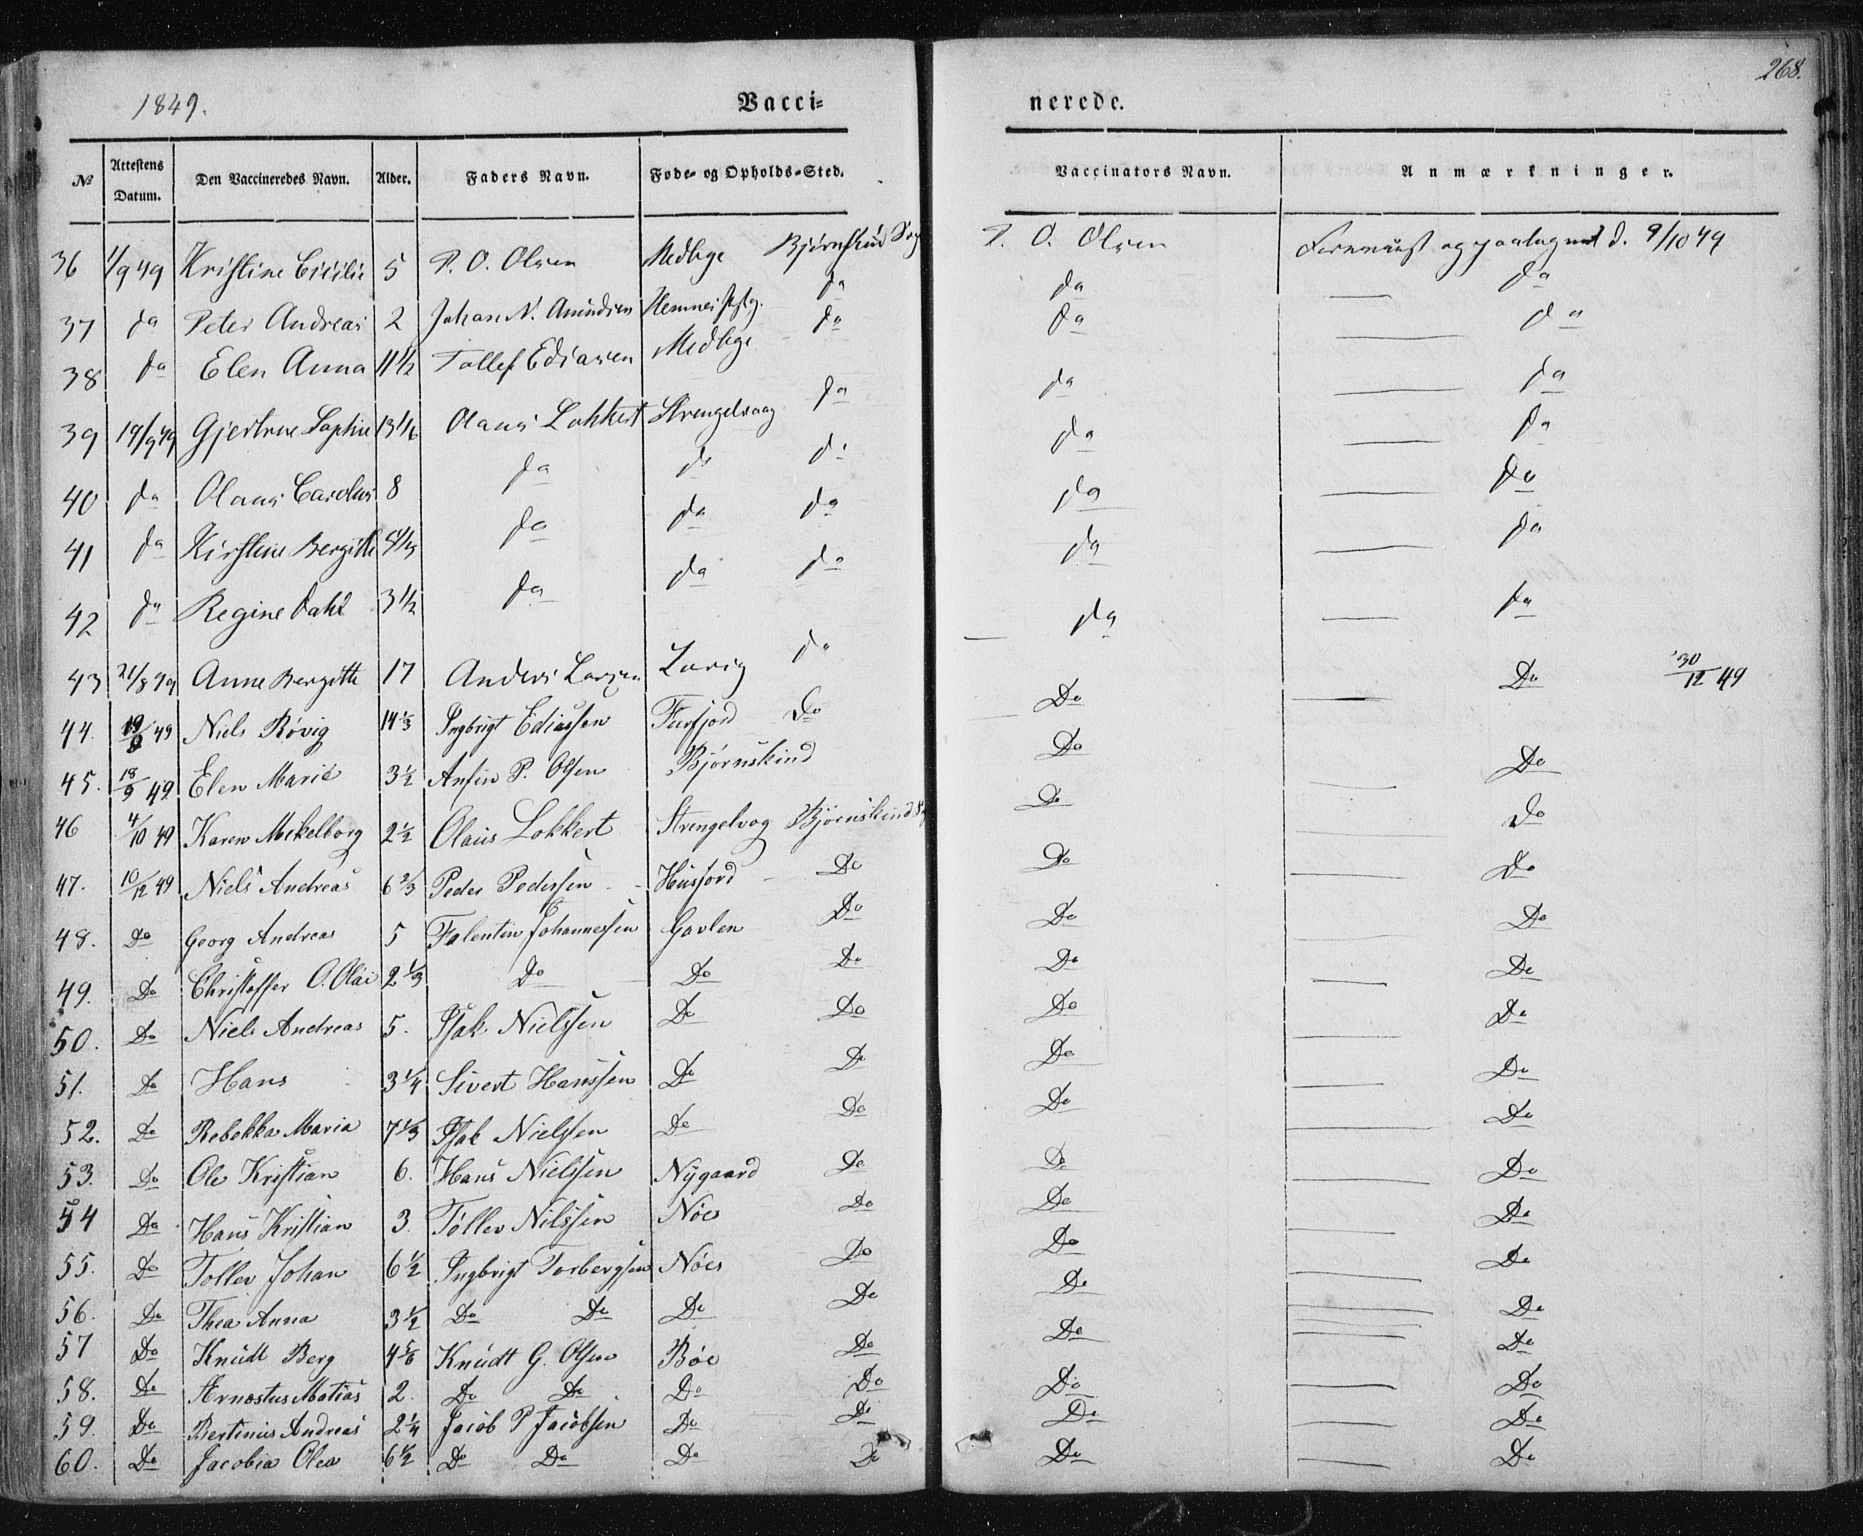 268.
1849. Vacci= nerede.
No Attestens Datum. Den Vaccineredes Navn. Alder. Faders Navn. Føde- og Opholds-Sted. Vaccinators Navn. Anmærkninger.
36 1/9 49 Kristine Cicilie 5 P. O. Olsen Medbye Bjørnskind Sogn P. O. Olsen d. 9/10 49
37 do Peter Andreas 2 Johan N. Amundsen Hemnes do do do
38 do Elen Anna 11 1/2 Tollef Ediasen Medbye do do do
39 19/9 49 Gjertrue Sophie 13 1/6 Olaus Lokkert Strengelvaag do do do
40 do Olaus Carolus 8 do do do do do
41 do Kirstine Bergitte do do do do do
42 do Regine Dahl 3 1/2 do do do do do
43 21/8 49 Anne Bergitte 17 Anders Larsen Lovig do do do
44. 19/9 49 Niels Røvig 14 1/3 Ingbrigt Ediassen Finfjord Do Do Do 30/12 49
45. 18/9 49 Elen Marie 3 1/2 Anfin P. Olsen Bjørnskind Do Do
46 4/10 49 Karen Mekelborg 2 1/2 Olaus Lokkert Strengelvog Bjørnskind Do Do
47. 10/12 49 Niels Andreas 6 2/3 Peder Pedersen Husjord Do Do Do
48. Do Georg Andreas 5 Falentin Johannessen Gavlen Do Do Do
49. Do Christoffer O. Olai 2 1/3 Do Do Do Do Do
50. Do Niels Andreas 5. Isak Nielssen Do Do Do Do
51. Do Hans 3 1/4 Sivert Hanssen Do Do Do Do
52. Do Rebekka Maria 7 1/3 Isak Nielssen Do Do Do Do
53. Do Ole Kristian 6. Hans Nielssen Nygaard Do Do Do
54 Do Hans Kristian 3 Tøllev Nilssen Nöes Do Do Do
55. Do Tollev Johan 6 1/2 Ingbrigt Torbergsen Nöes Do Do Do
56. Do Thea Anna 3 1/2 Do Do Do Do Do Do
57 Do Knudt Berg 4 5/6 Knudt G. Olsen Böe Do Do Do
58. Do Arnostus Matias 2. Do Do Do Do Do Do
59. Do Bertinus Andreas 2 1/4 Jacob P Jacobsen Do Do Do Do
60. Do Jacobia Olea 6 1/2 Do Do Do Do Do Do